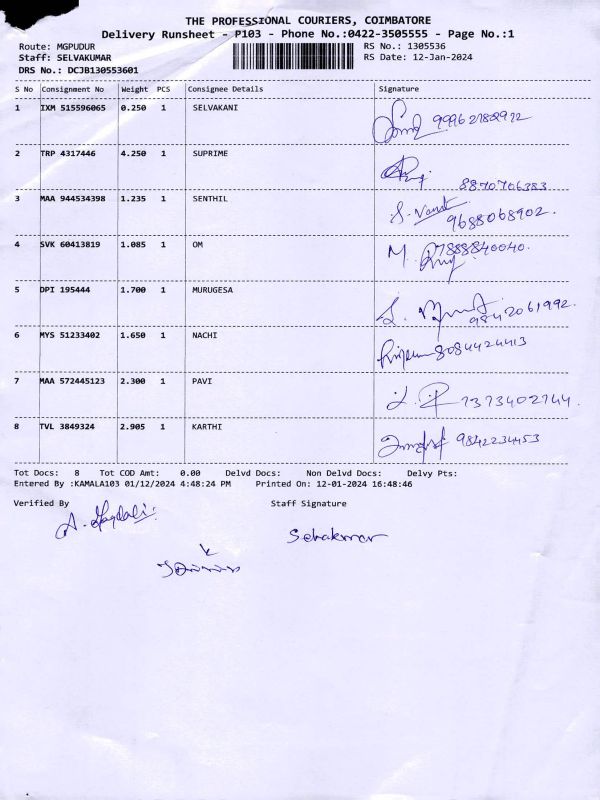 THE PROFESSIONAL COURIERS, COIMBATORE
Delivery Runsheet - P103 - Phone No.:0422-3505555 - Page No.:1
Route: MGPUDUR RS No.: 1305536
Staff: SELVAKUMAR RS Date: 12-Jan-2024
DRS No.: DCJB130553601
S No Consignment No Weight PCS Consignee Details Signature
1 IXM 515596065 0.250 1 SELVAKANI
2 TRP 4317446 4.250 1 SUPRIME 8870706383
3 MAA 944534398 1.235 1 SENTHIL 9688068902.
4 SVK 60413819 1.085 1 OM 7888840040.
5 DPI 195444 1.700 1 MURUGESA 9842061992.
6 MYS 51233402 1.650 1 NACHI 8084424413
7 MAA 572445123 2.300 1 PAVI
8 TVL 3849324 2.905 1 KARTHI 9842234453
Tot Docs: 8 Tot COD Amt: 0.00 Delvd Docs: Non Delvd Docs: Delvy Pts:
Entered By :KAMALA103 01/12/2024 4:48:24 PM Printed On: 12-01-2024 16:48:46
Verified By Staff Signature